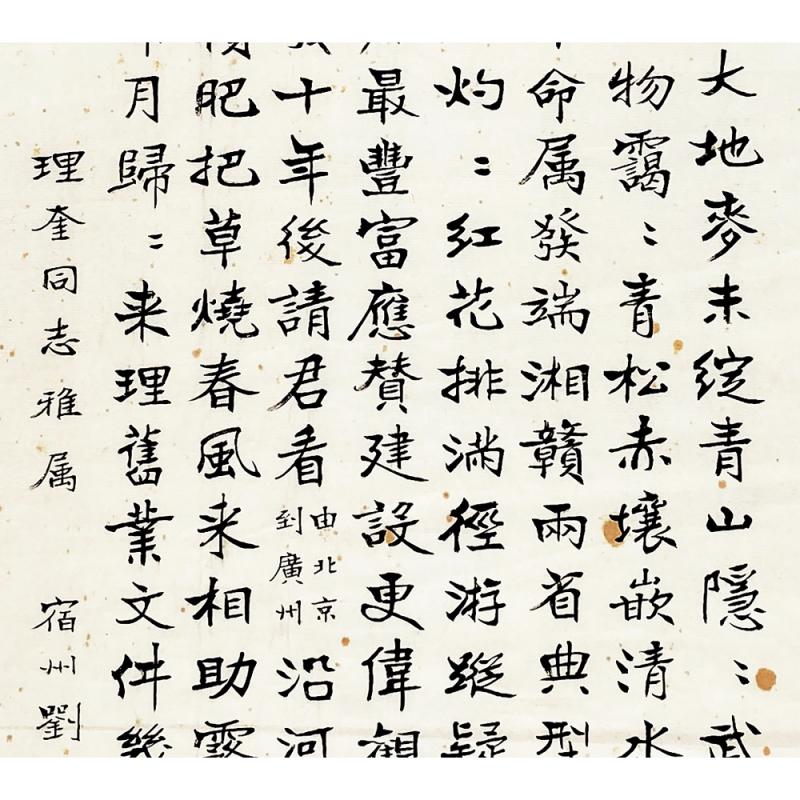 大地麥未綻青山隱〻武
物靄〻青松赤壤嵌清水
命属發端湘贛兩省典型
灼〻紅花排满徑游蹤疑
最豐富應贊建設更偉觀
十年後請君看
由北京
到廣州
沿河
肥把草燒春風来相助
月歸〻来理舊業文件幾
理奎同志雅属
宿州劉